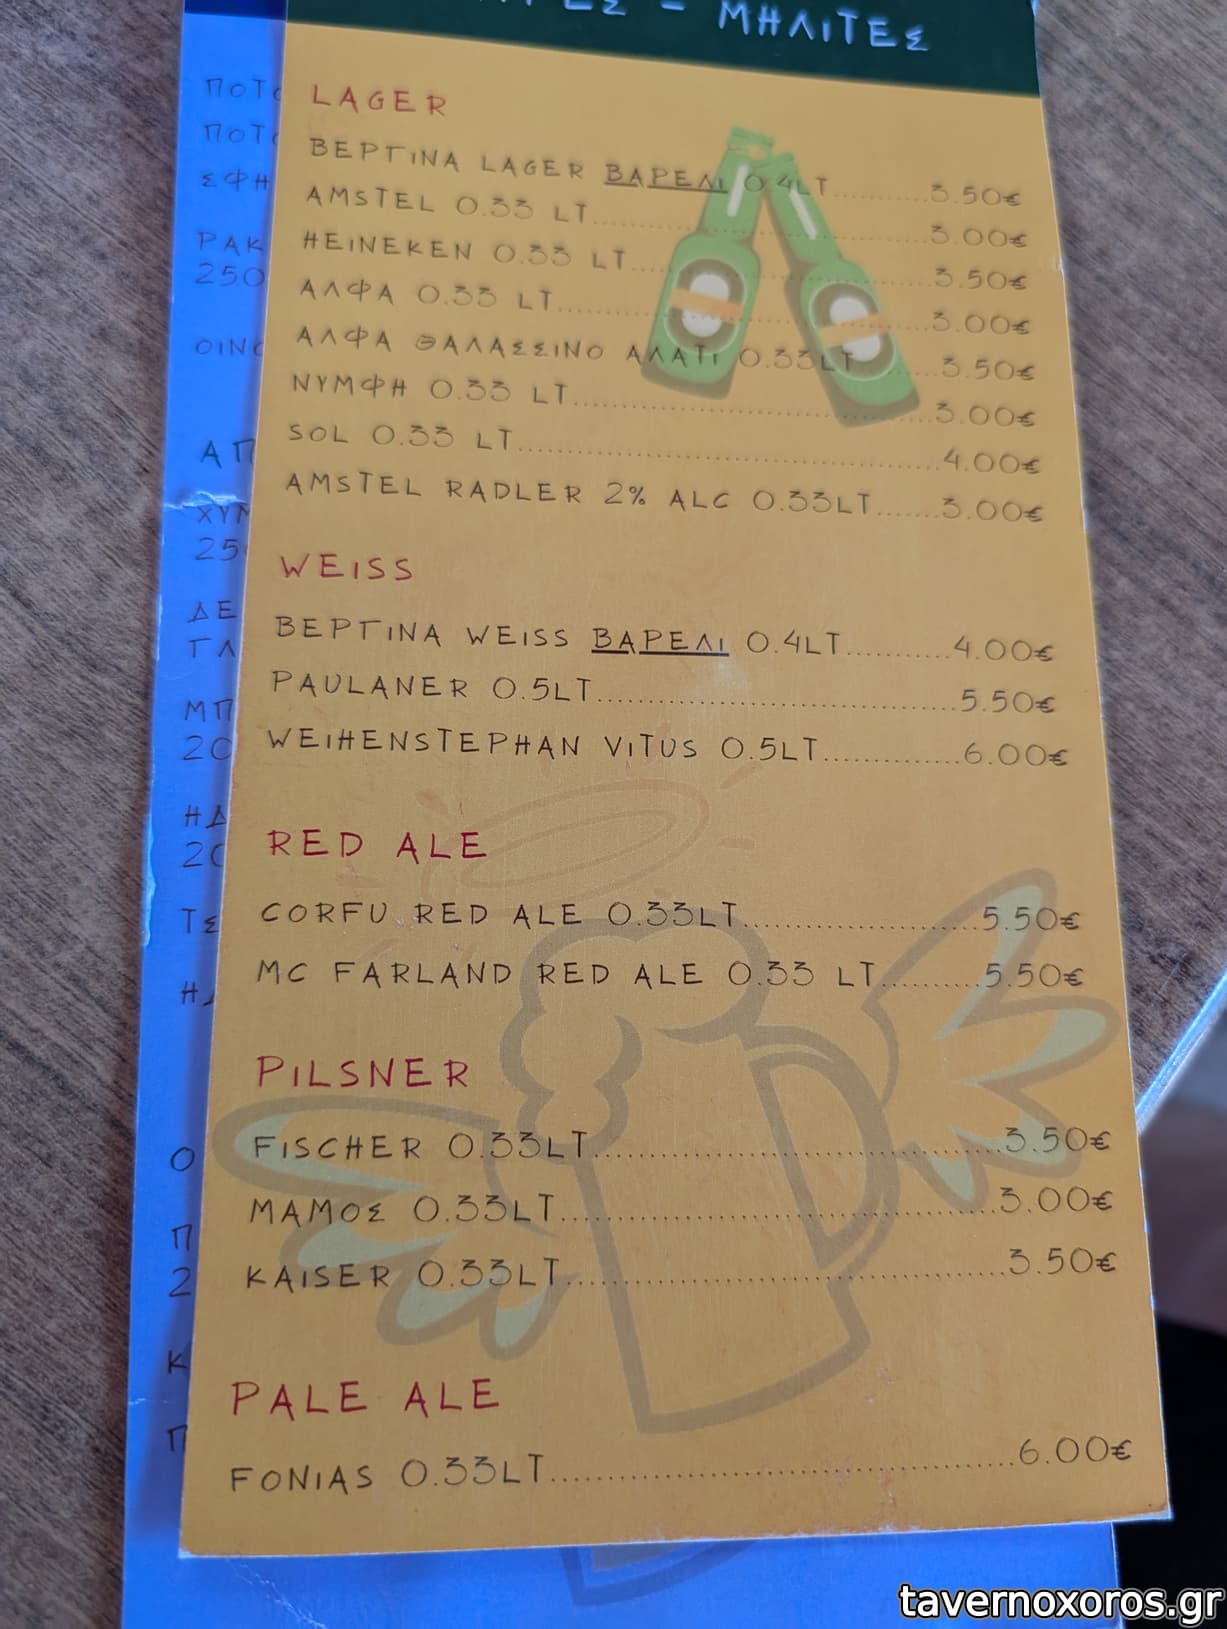 - ΜΗΛΙΤΕΣ
LAGER
ΒΕΡΓΙΝΑ LAGER ΒΑΡΕΛΙ 0.4LT..........3.50€
AMSTEL 0.33 LT..........3.00€
HEINEKEN 0.33 LT..........3.50€
ΑΛΦΑ 0.33 LT..........3.00€
ΑΛΦΑ ΘΑΛΑΣΣΙΝΟ ΑΛΑΤΙ 0.33LT..........3.50€
ΝΥΜΦΗ 0.33 LT..........3.00€
SOL 0.33 LT..........4.00€
AMSTEL RADLER 2% ALC 0.33LT.......3.00€
WEISS
ΒΕΡΓΙΝΑ WEISS ΒΑΡΕΛΙ 0.4LT..........4.00€
PAULANER 0.5LT..........5.50€
WEIHENSTEPHAN VITUS 0.5LT..........6.00€
RED ALE
CORFU RED ALE 0.33LT..........5.50€
MC FARLAND RED ALE 0.33 LT..........5.50€
PILSNER
FISCHER 0.33LT..........3.50€
ΜΑΜΟΣ 0.33LT..........3.00€
KAISER 0.33LT..........3.50€
PALE ALE
FONIAS 0.33LT..........6.00€
250
tavernoxoros.gr